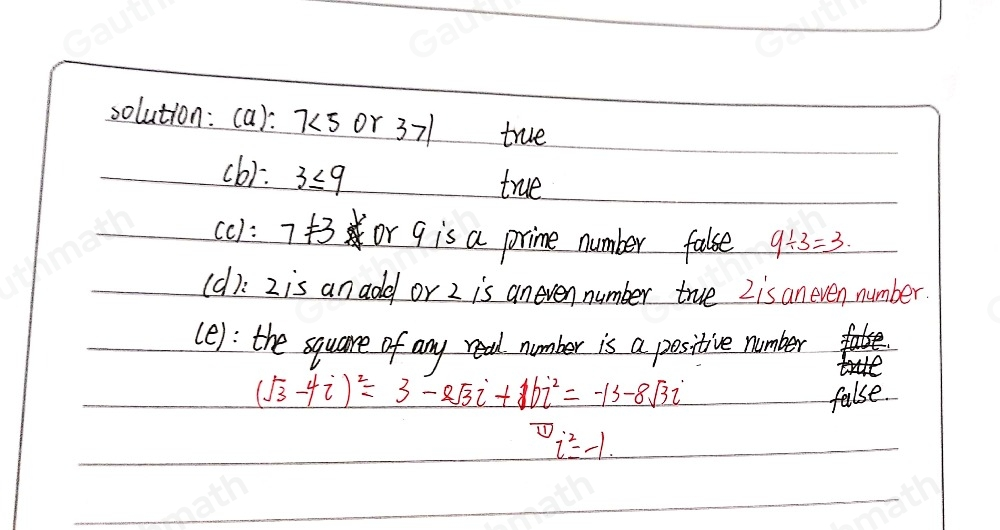 solution: (a): 7<5 or 3>1 true
(b): 3≤9 true
(c): 7≠3 or 9 is a prime number false 9÷3=3.
(d): 2 is an add or 2 is an even number true 2 is an even number.
(e): the square of any real number is a positive number false.
true
false.
(√3-4i)²= 3-8√3i+16i²= -13-8√3i
i²=-1.
Gauthmath